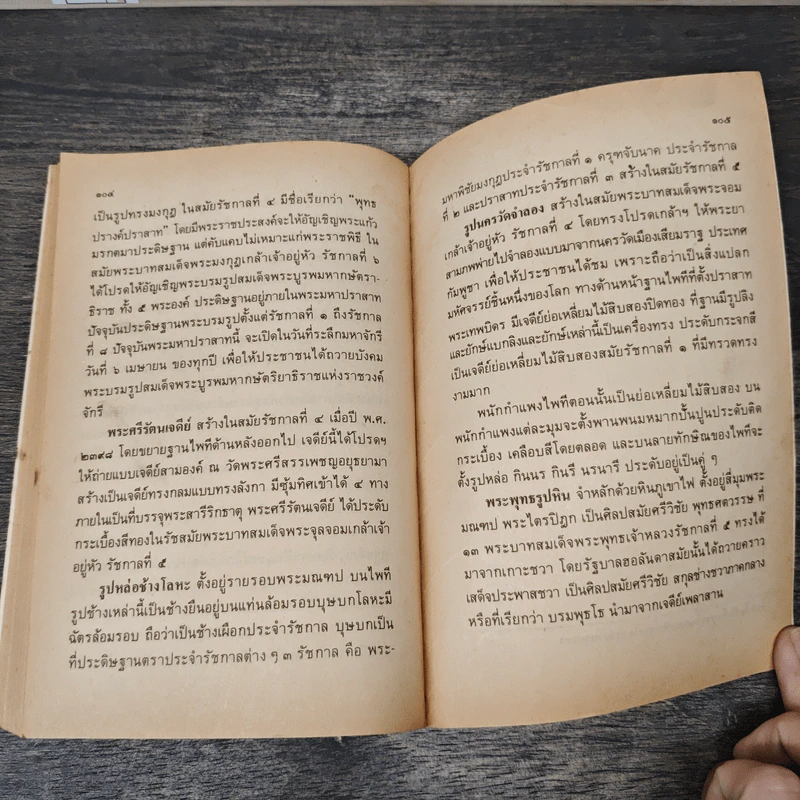 ๑๐๔
เป็นรูปทรงมงกุฎ ในสมัยรัชกาลที่ ๔ มีชื่อเรียกว่า "พุทธ
ปรางค์ปราสาท" โดยมีพระราชประสงค์จะให้อัญเชิญพระแก้ว
มรกตมาประดิษฐาน แต่คับแคบไม่เหมาะแก่พระราชพิธี ใน
สมัยพระบาทสมเด็จพระมงกุฎเกล้าเจ้าอยู่หัว รัชกาลที่ ๖
ได้โปรดให้อัญเชิญพระบรมรูปสมเด็จพระบูรพมหากษัตรา-
ธิราช ทั้ง ๕ พระองค์ ประดิษฐานอยู่ภายในพระมหาปราสาท
ปัจจุบันประดิษฐานพระบรมรูปตั้งแต่รัชกาลที่ ๑ ถึงรัชกาล
ที่ ๘ ปัจจุบันพระมหาปราสาทนี้ จะเปิดในวันที่ระลึกมหาจักรี
วันที่ ๖ เมษายน ของทุกปี เพื่อให้ประชาชนได้ถวายบังคม
พระบรมรูปสมเด็จพระบูรพมหากษัตริยาธิราชแห่งราชวงศ์
จักรี
พระศรีรัตนเจดีย์ สร้างในสมัยรัชกาลที่ ๔ เมื่อปี พ.ศ.
๒๓๙๘ โดยขยายฐานไพทีด้านหลังออกไป เจดีย์นี้ได้โปรดฯ
ให้ถ่ายแบบเจดีย์สามองค์ ณ วัดพระศรีสรรเพชญอยุธยามา
สร้างเป็นเจดีย์ทรงกลมแบบทรงลังกา มีซุ้มทิศเข้าได้ ๔ ทาง
ภายในเป็นที่บรรจุพระสารีริกธาตุ พระศรีรัตนเจดีย์ ได้ประดับ
กระเบื้องสีทองในรัชสมัยพระบาทสมเด็จพระจุลจอมเกล้าเจ้า
อยู่หัว รัชกาลที่ ๕
รูปหล่อช้างโลหะ ตั้งอยู่รายรอบพระมณฑป บนไพที
รูปช้างเหล่านี้เป็นช้างยืนอยู่บนแท่นล้อมรอบบุษบกโลหะมี
ฉัตรล้อมรอบ ถือว่าเป็นช้างเผือกประจำรัชกาล บุษบกเป็น
ที่ประดิษฐานตราประจำรัชกาลต่าง ๆ ๓ รัชกาล คือ พระ-
๑๐๕
มหาพิชัยมงกุฎประจำรัชกาลที่ ๑ ครุฑจับนาค ประจำรัชกาล
ที่ ๒ และปราสาทประจำรัชกาลที่ ๓ สร้างในสมัยรัชกาลที่ ๕
รูปนครวัดจำลอง สร้างในสมัยพระบาทสมเด็จพระจอม
เกล้าเจ้าอยู่หัว รัชกาลที่ ๔ โดยทรงโปรดเกล้าฯ ให้พระยา
สามภพพ่ายไปจำลองแบบมาจากนครวัดเมืองเสียมราฐ ประเทศ
กัมพูชา เพื่อให้ประชาชนได้ชม เพราะถือว่าเป็นสิ่งแปลก
มหัศจรรย์ชิ้นหนึ่งของโลก ทางด้านหน้าฐานไพทีที่ตั้งปราสาท
พระเทพบิตร มีเจดีย์ย่อเหลี่ยมไม้สิบสองปิดทอง ที่ฐานมีรูปลิง
และยักษ์แบกลิงและยักษ์เหล่านี้เป็นเครื่องทรง ประดับกระจกสี
เป็นเจดีย์ย่อเหลี่ยมไม้สิบสองสมัยรัชกาลที่ ๑ ที่มีทรวดทรง
งามมาก
พนักกำแพงไพทีตอนนั้นเป็นย่อเหลี่ยมไม้สิบสอง บน
พนักกำแพงแต่ละมุมจะตั้งพานพนมหมากปั้นปูนประดับติด
กระเบื้อง เคลือบสีโดยตลอด และบนลายทักษิณของไพทีจะ
ตั้งรูปหล่อ กินนร กินรี นรนารี ประดับอยู่เป็นคู่ ๆ
พระพุทธรูปหิน จำหลักด้วยหินภูเขาไฟ ตั้งอยู่สี่มุมพระ
มณฑป พระไตรปิฎก เป็นศิลปสมัยศรีวิชัย พุทธศตวรรษ ที่
๑๓ พระบาทสมเด็จพระพุทธเจ้าหลวงรัชกาลที่ ๕ ทรงได้
มาจากเกาะชวา โดยรัฐบาลฮอลันดาสมัยนั้นได้ถวายคราว
เสด็จประพาสชวา เป็นศิลปสมัยศรีวิชัย สกุลช่างชวาภาคกลาง
หรือที่เรียกว่า บรมพุทโธ นำมาจากเจดีย์เพลาสาน